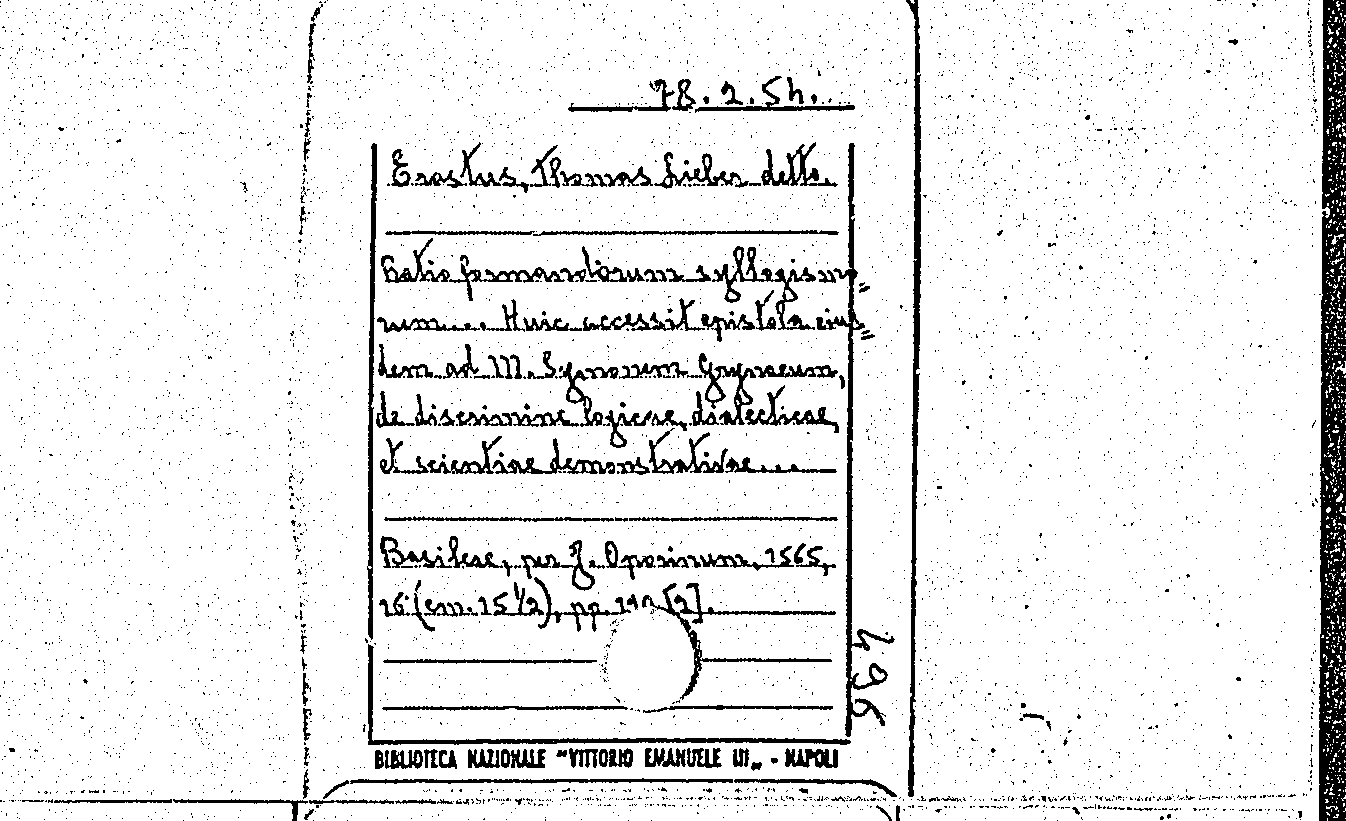 78.2.54.
Erastus, Thomas Lieber detto.
Ratio formandorum syllogismo„
rum... Huic accessit epistola eius„
dem ad M. Symonum Grynaeum,
de discrimine logicae, dialecticae,
et scientiae demonstrativae...
Basileae, per J. Oporinum, 1565,
16° (cm. 15 1/2), pp. [2].
496
BIBLIOTECA NAZIONALE "VITTORIO EMANUELE III„ - NAPOLI